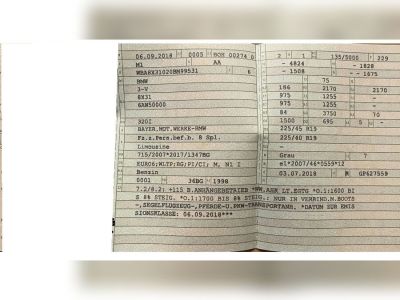 06.09.2018 0005 BOH 00274 0
M1 AA
WBA8X31020BM99531 6
BMW
3-V
8X31
6AN50000
320I
BAYER.MOT.WERKE-BMW
Fz.z.Pers.bef.b. 8 Spl.
Limousine
715/2007*2017/1347BG
EURO6;WLTP;RG;PI/CI; M, N1 I
Benzin
0001 36BG 1998
2 1 135/5000 229
- 4824 - 1828
- 1508 - 1475
75
186 2170 2170
975 1255 -
975 1255 -
84 3750 70
1500 695 5 -
225/45 R18
225/40 R19
-
Grau 7
e1*2007/46*0559*12
03.07.2018 K GP627559
7.2/8.2: +115 B.ANHÄNGEBETRIEB *WW.AHK LT.EGTG *O.1:1600 BI
S 8% STEIG. *O.1:1700 BIS 8% STEIG.: NUR IN VERBIND.M.BOOTS
-,SEGELFLUGZEUG-,PFERDE-U.PKW-TRANSPORTANH. *DATUM ZUR EMIS
SIONSKLASSE: 06.09.2018***